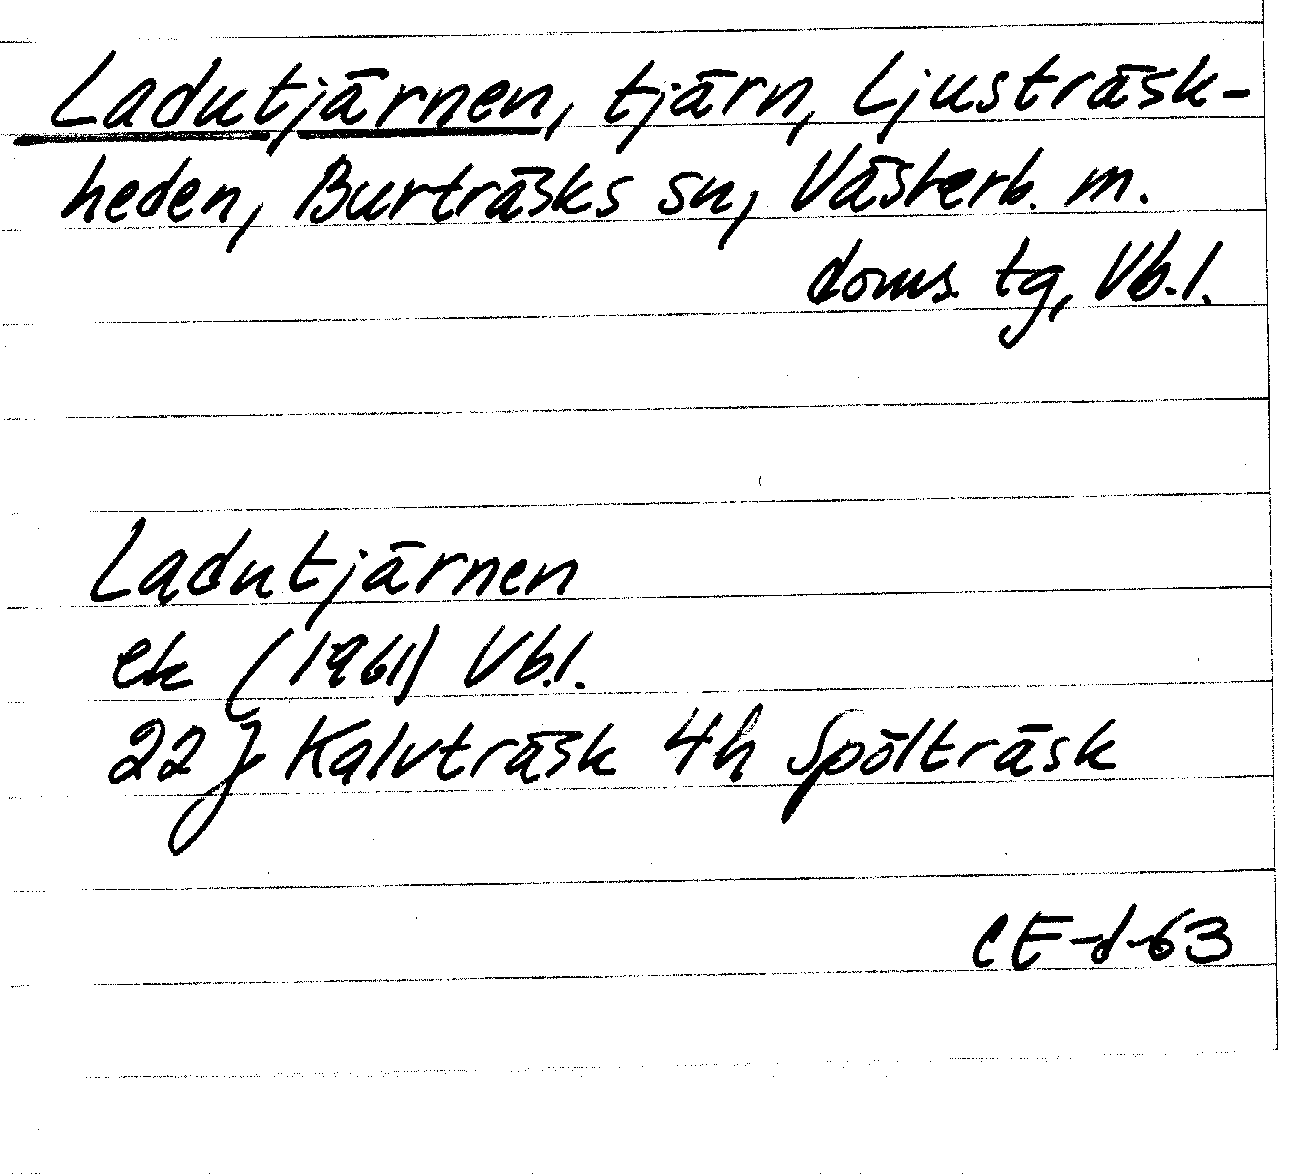 Ladutjärnen, tjärn, Ljusträsk-
heden, Burträsks sn, Västerb. m.
doms. tg, Vb.l.
Ladutjärnen
ek (1961) Vb.l.
22J Kalvträsk 4h Spölträsk
CE-d-63